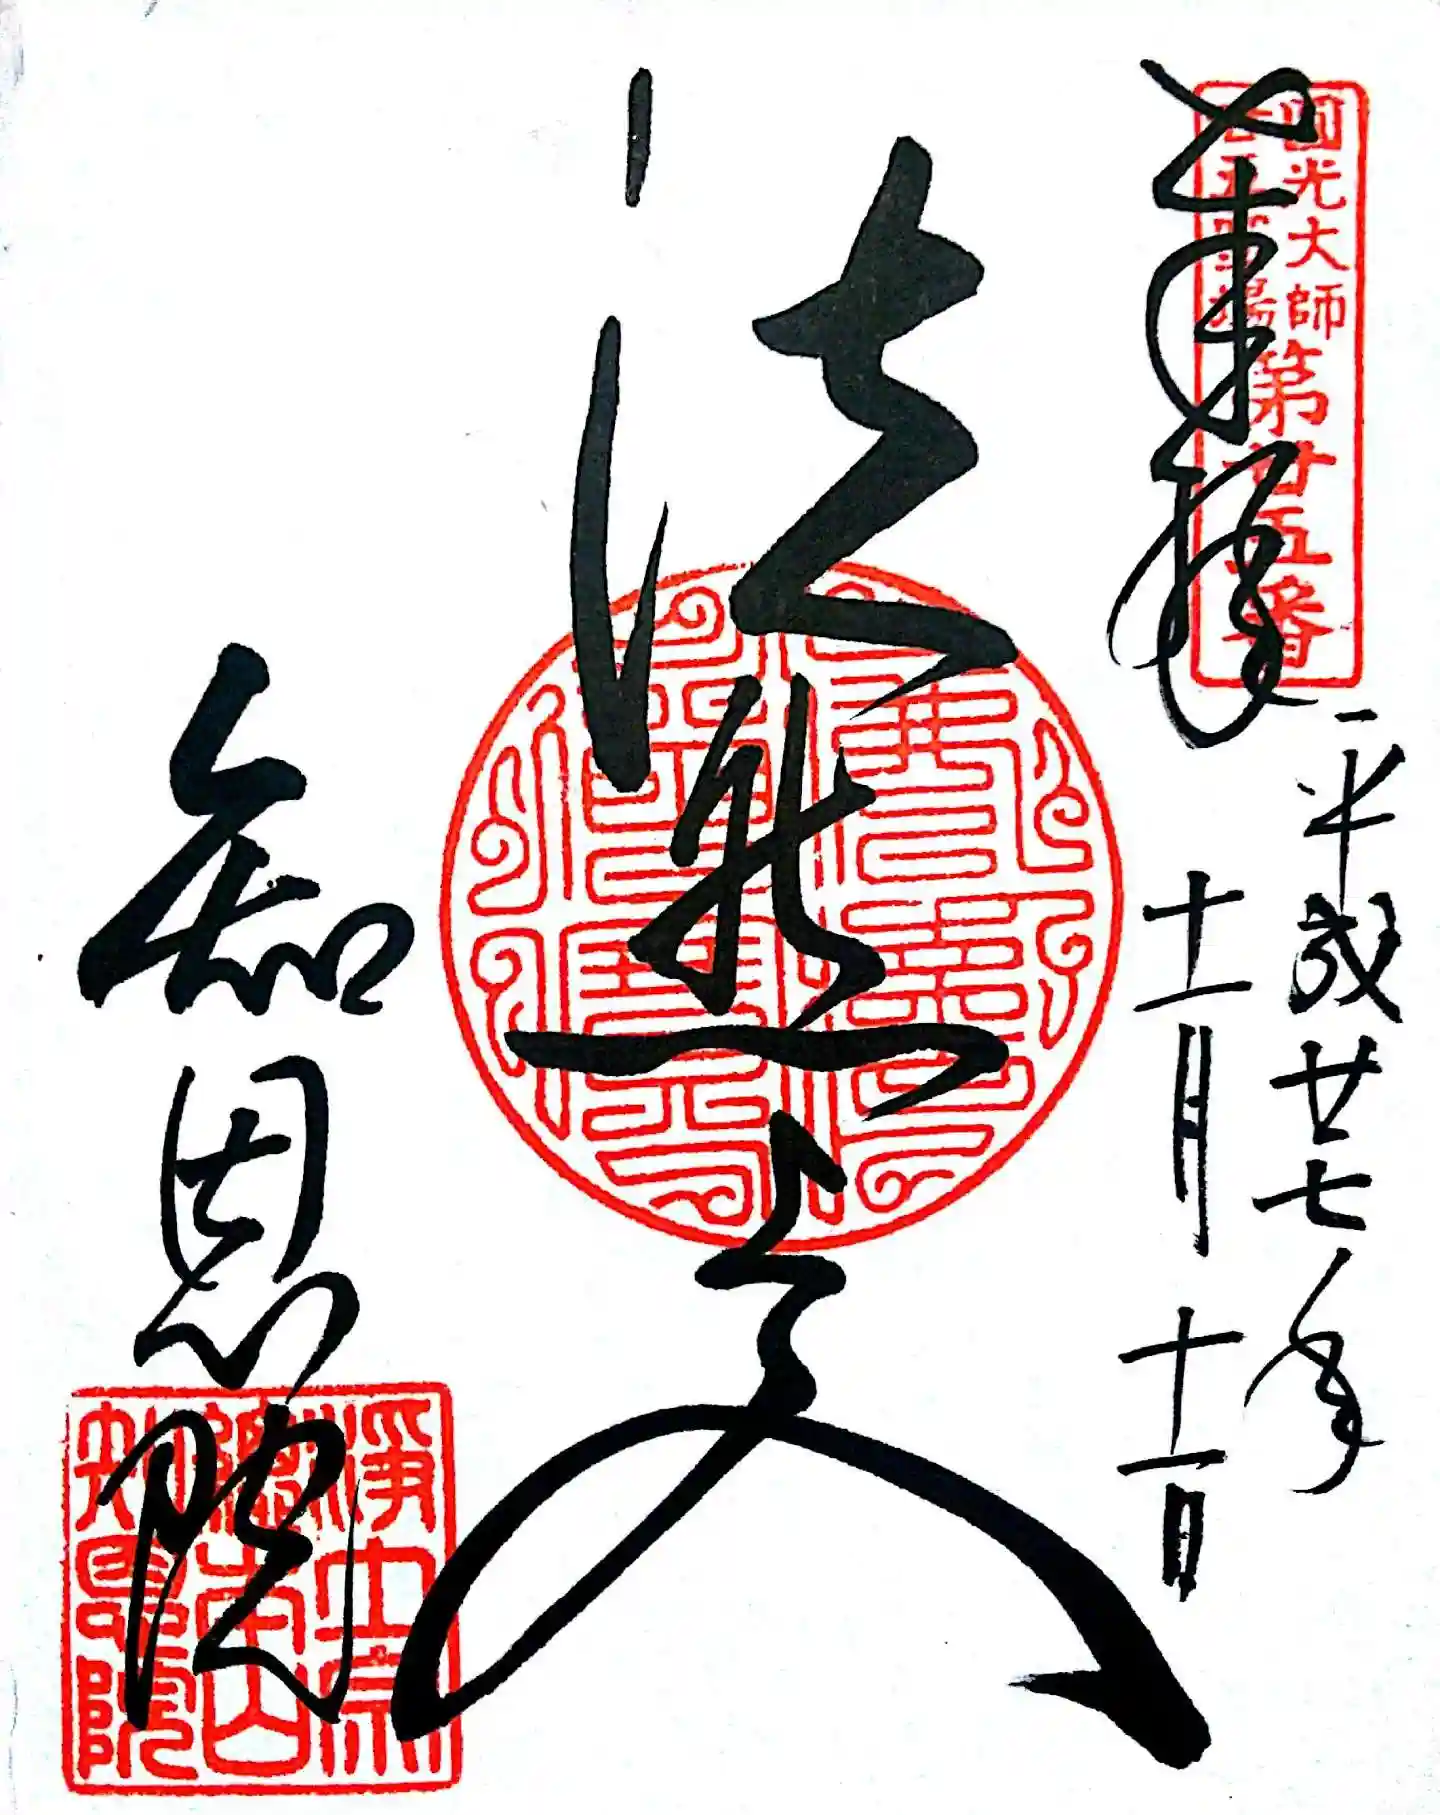 奉拝
圓光大師
廿五霊場
第廿五番
平成廿七年
十一月十一日
法然上人
知恩院
浄土宗
総本山
知恩院